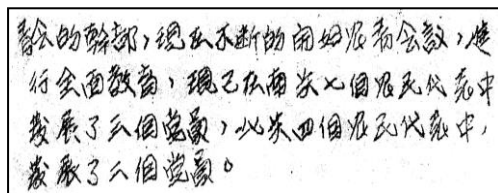 會的幹部，現在不断的開始農村會議，進
行全面教育，現已在南朱七個農民代表中
發展了三個党員，北朱四個農民代表中，
發展了二個党員。